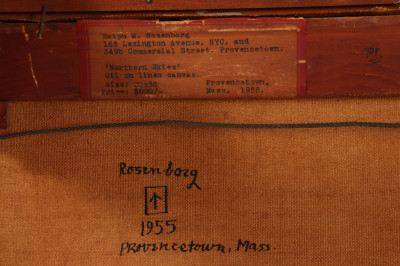 Ralph W. Rosenborg
168 Lexington Avenue, NYC, and
349b Commercial Street. Provencetown.
'Northern Skies'
Oil on linen canvas.
Size: Provencetown,
Price: Mass.
Rosenborg
1955
Provincetown, Mass.